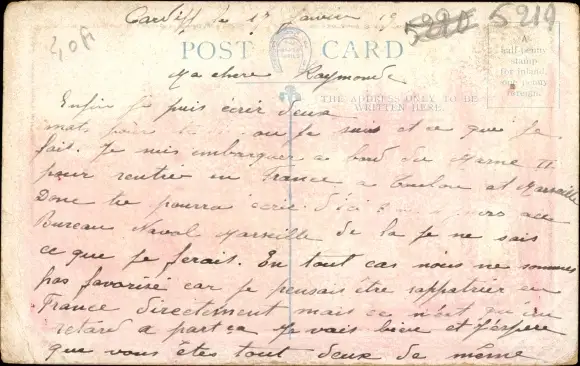 Cardiff le 17 Janvier 19
5290 5219
POST CARD
A
half-penny
stamp
for inland,
one penny
foreign.
Ma chere Raymonde
THE ADDRESS ONLY TO BE
WRITTEN HERE
Enfin je puis écrir deux
mots pour ou je suis et ce que je
fait. Je suis embarquer a bord du Marne II
pour rentre en France a Toulon et Marseille
Donc tu pourra écrir d'ici jours au
Bureau Naval Marseille de la je ne sais
ce que je ferais. En tout cas nous ne sommes
pas favorisé car je pensais être rappatrier en
France directement mais ce n'est qu'un
retard a part ça je vais bien et j'espère
que vous êtes tout deux de même